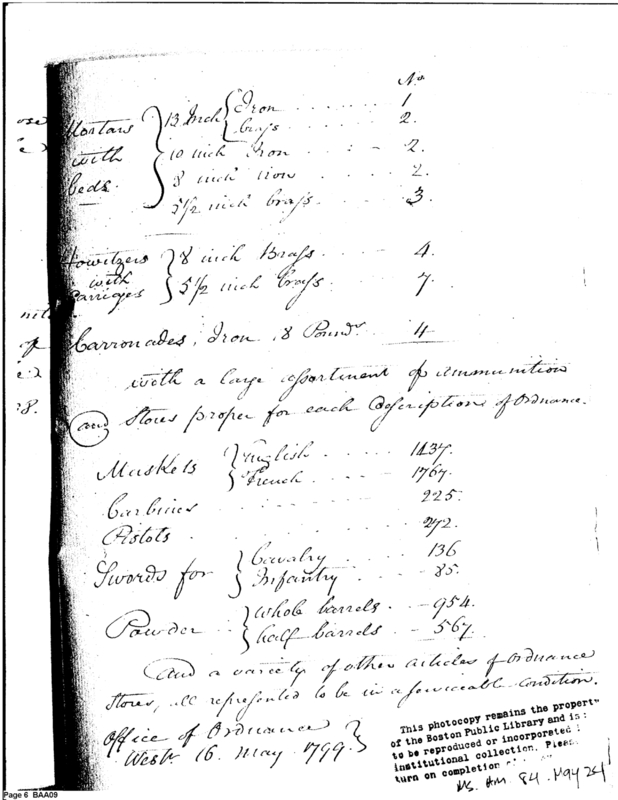 No
Mortars with beds. 13 Inch Iron . . . . . . 1
brass . . . . 2.
10 inch Iron . . . - 2.
8 inch iron . . . . 2.
5 1/2 inch brass . . . . 3.
Howitzers with Carriges 8 inch Brass . . . . 4.
5 1/2 inch brass . . . . 7.
Carronades, Iron 18 Pounrs. 4
with a large assortment of ammunition
and Stores proper for each Description of Ordnance.
Muskets English . . . . . 1137.
French . . . . 1767.
Carbines . . . . 225.
Pistols . . . . 272.
Swords for Cavalry . . . . 136
Infantry . . . . 85.
Powder whole barrels . . 954.
half barrels . . 567.
And a variety of other articles of Ordnance
Stores, all represented to be in a serviceable condition.
Office of Ordnance
Westr 16. May. 1799.
This photocopy remains the propert
of the Boston Public Library and is
to be reproduced or incorporated
institutional collection. Pleas
turn on completion
Ms. Am. 84. May 24
Page 6 BAA09